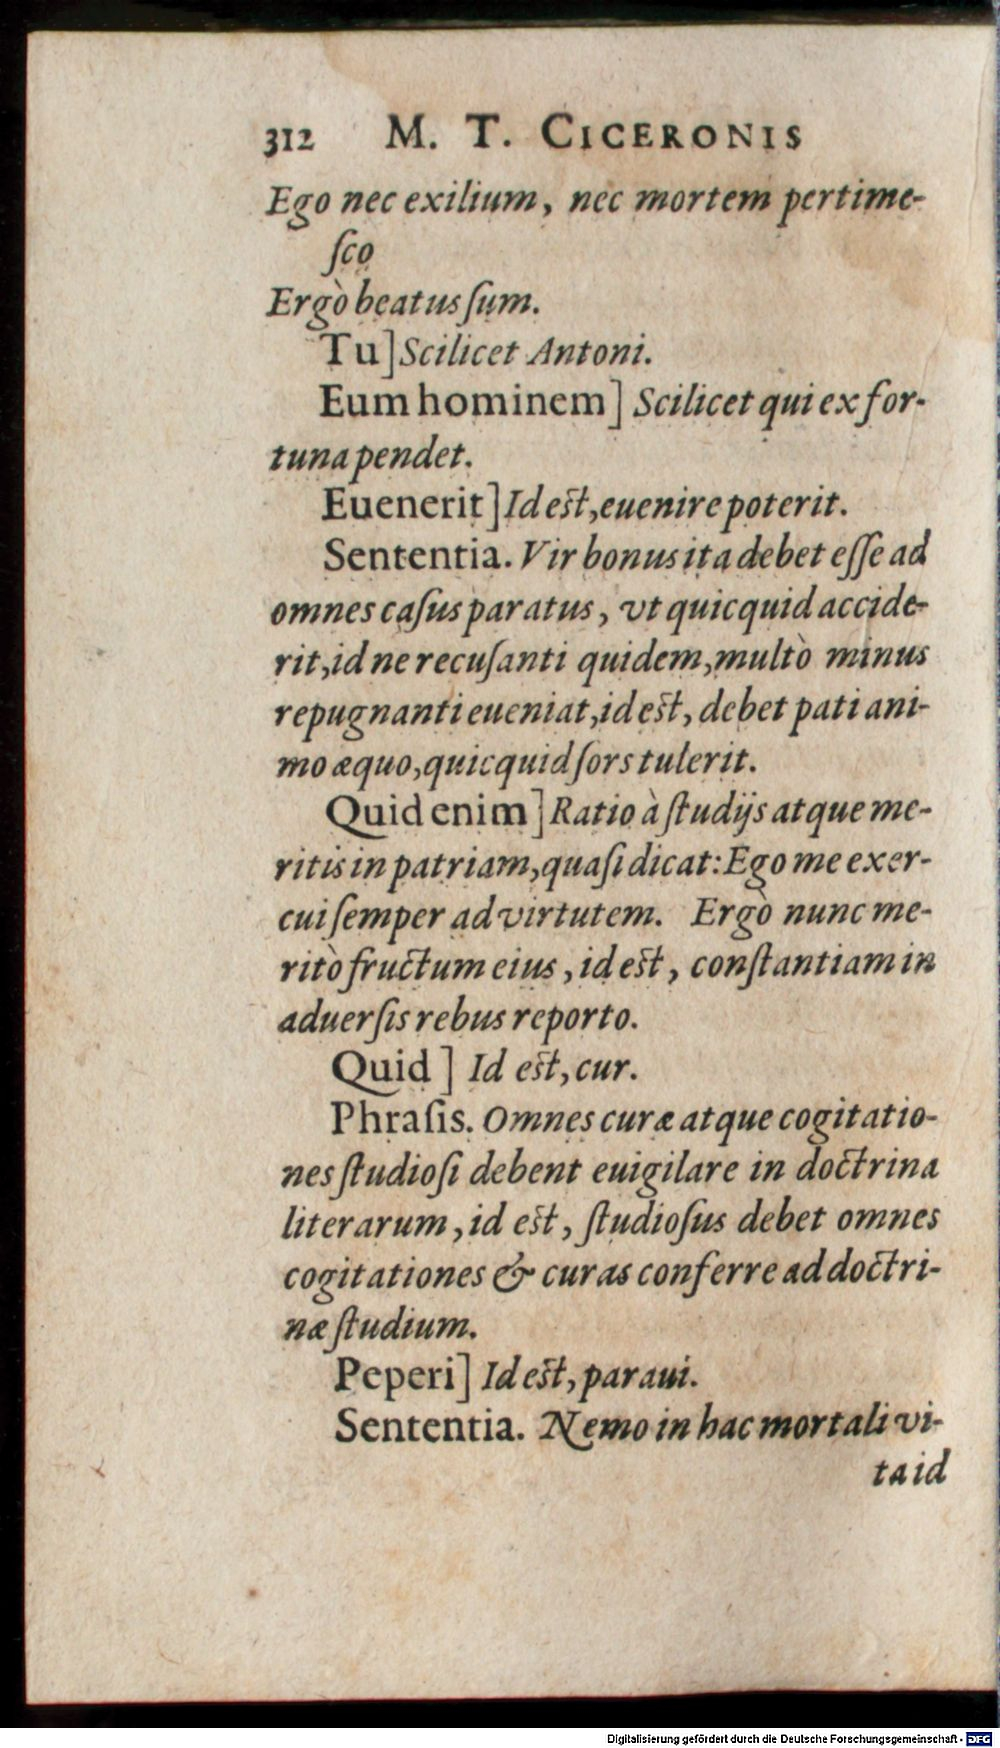 312 M. T. CICERONIS
Ego nec exilium, nec mortem pertime-
ſco
Ergò beatus ſum.
Tu] Scilicet Antoni.
Eum hominem] Scilicet qui ex for-
tuna pendet.
Euenerit] Id eſt, euenire poterit.
Sententia. Vir bonus ita debet eſſe ad
omnes caſus paratus, vt quicquid accide-
rit, id ne recuſanti quidem, multò minus
repugnanti eueniat, id eſt, debet pati ani-
mo æquo, quicquid ſors tulerit.
Quid enim] Ratio à ſtudijs atque me-
ritis in patriam, quaſi dicat: Ego me exer-
cui ſemper ad virtutem. Ergò nunc me-
ritò fructum eius, id eſt, conſtantiam in
aduerſis rebus reporto.
Quid] Id eſt, cur.
Phraſis. Omnes curæ atque cogitatio-
nes ſtudioſi debent euigilare in doctrina
literarum, id eſt, ſtudioſus debet omnes
cogitationes & curas conferre ad doctri-
næ ſtudium.
Peperi] Id eſt, paraui.
Sententia. Nemo in hac mortali vi-
ta id
Digitalisierung gefördert durch die Deutsche Forschungsgemeinschaft - DFG